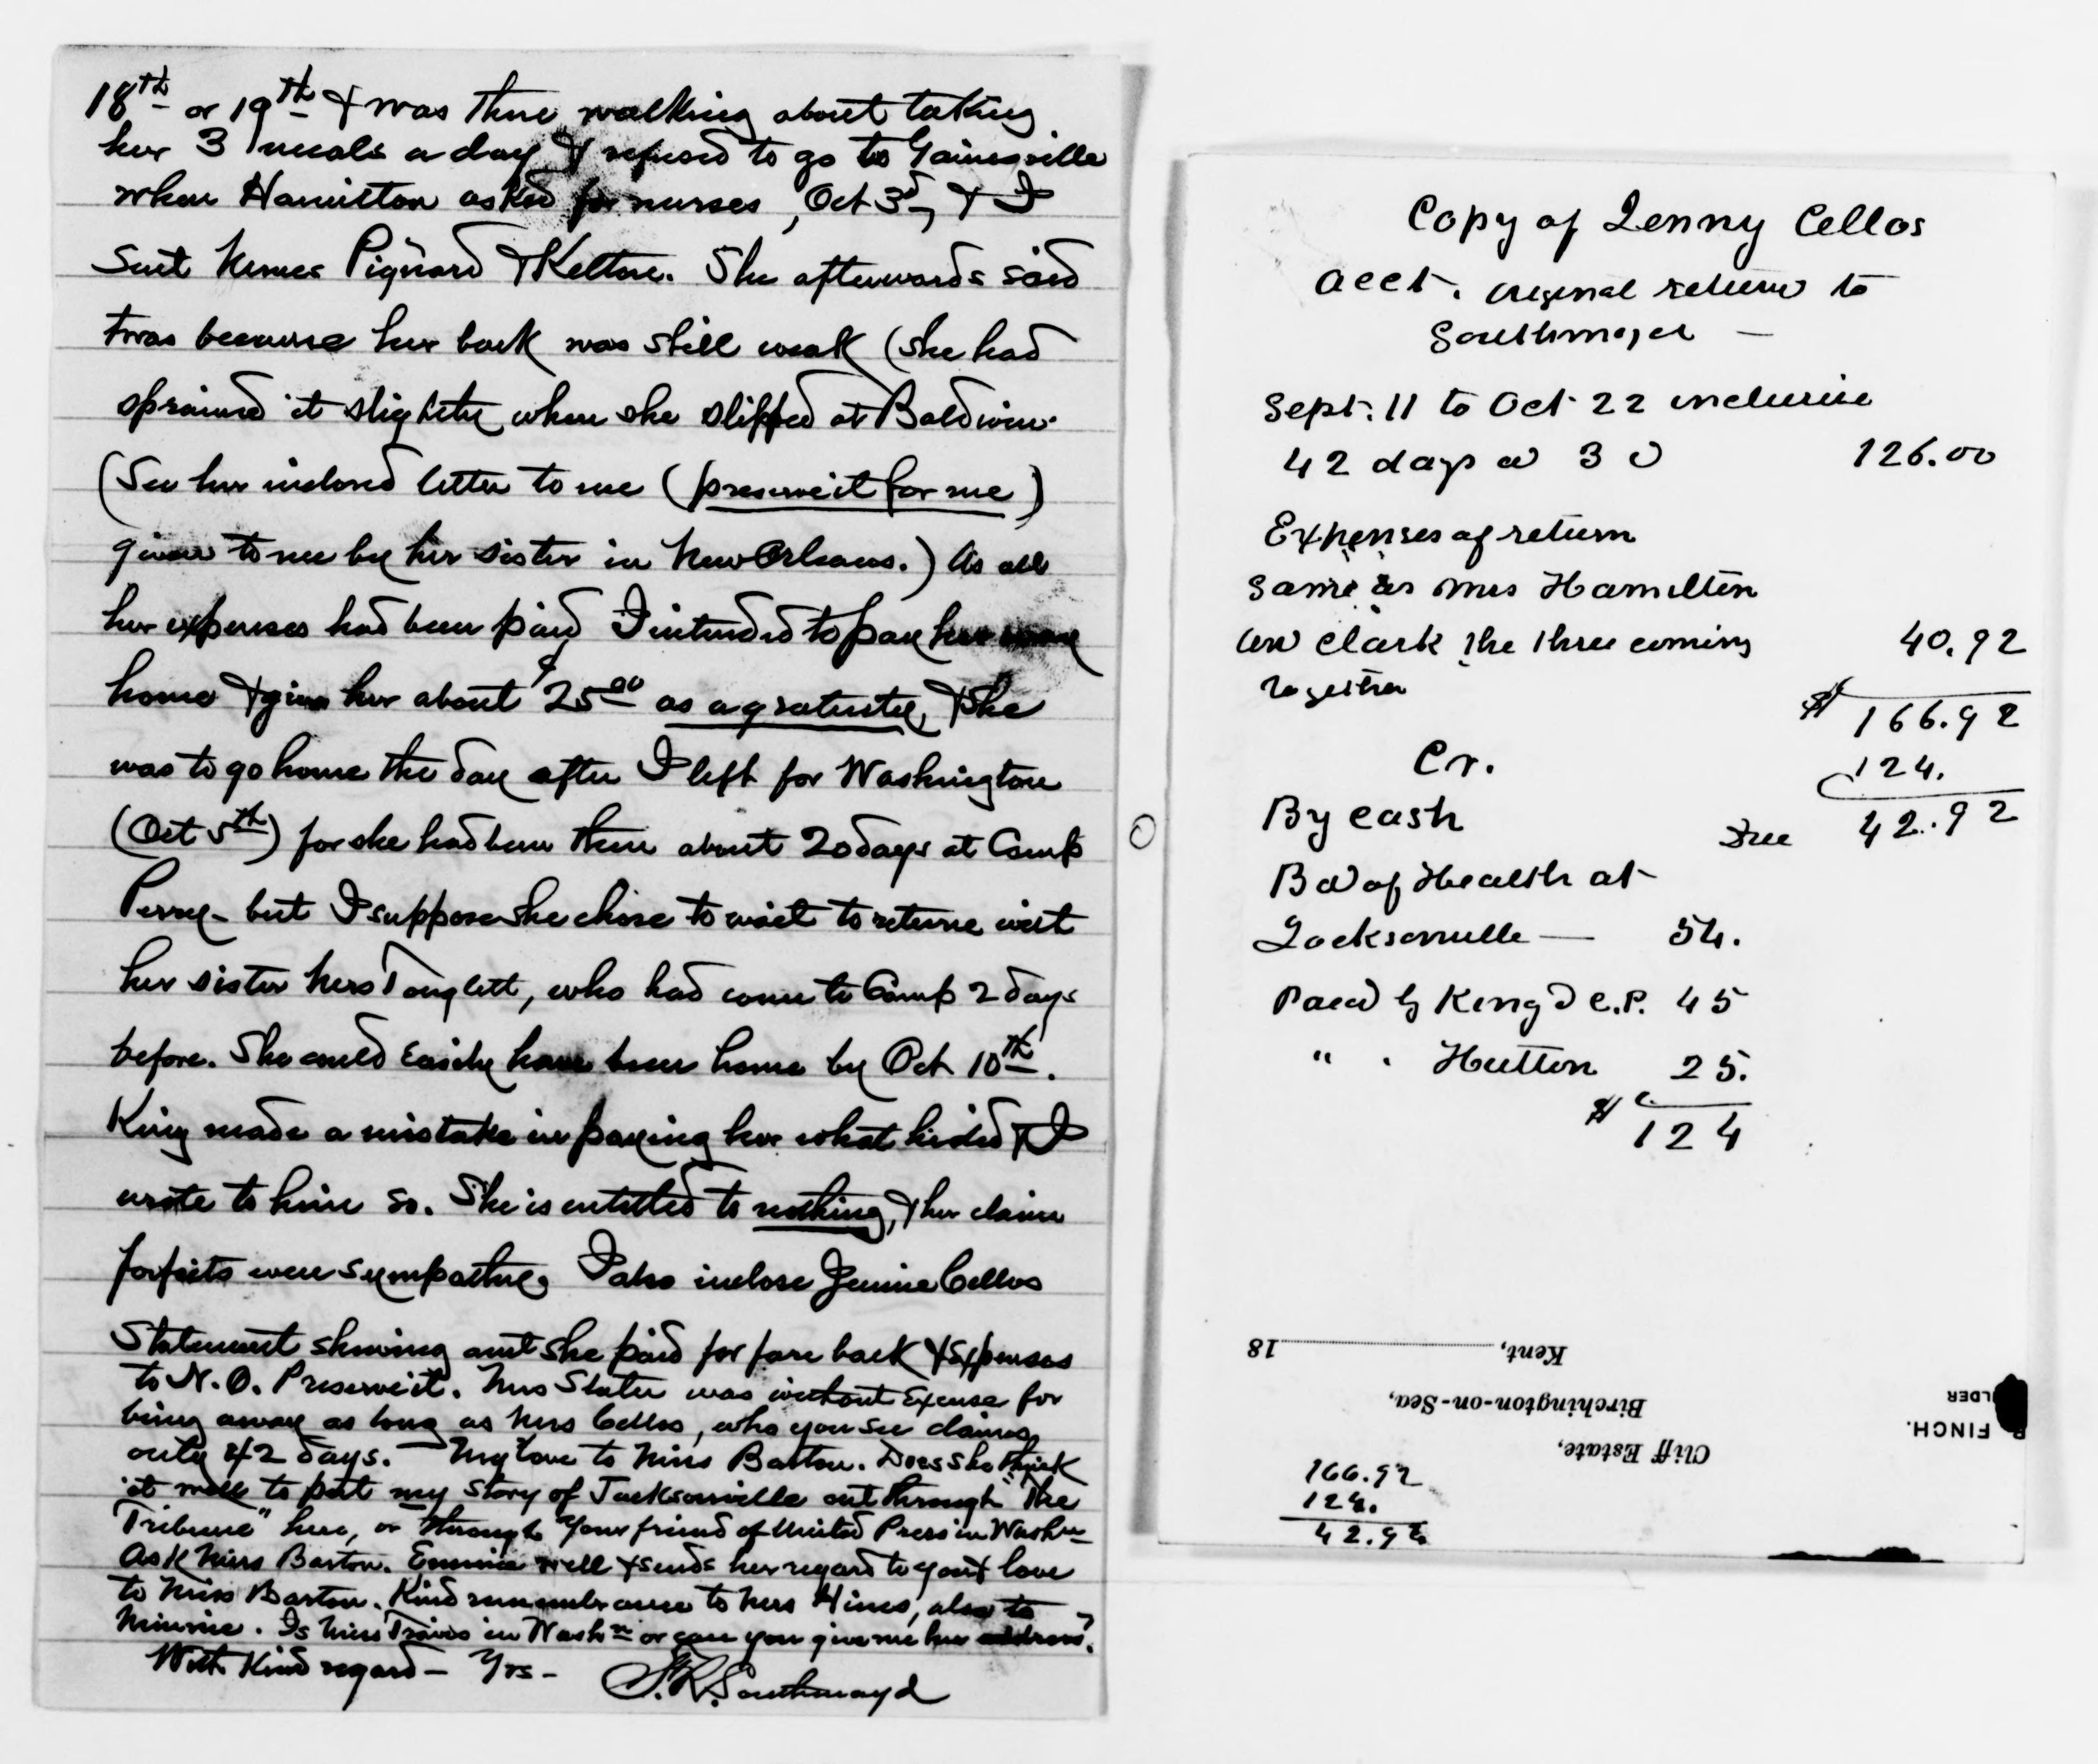 18th or 19th & was there walking about taking
her 3 meals a day & refused to go to Gainesville
when Hamilton asked for nurses, Oct 3d, & I
sent Nurses Pignard & Keltore. She afterwards said
twas because her back was still weak (she had
sprained it slightly when she slipped at Baldwin.
(See her inclosed letter to me (preserve it for me)
given to me by her sister in New Orleans.) As all
her expenses had been paid I intended to pay her
home & give her about $25 00 as a gratuity, & she
was to go home the day after I left for Washington
(Oct 5th) for she had been there about 20 days at Camp
Perry – but I suppose she chose to wait to return with
her sister Mrs Tauglett, who had come to Camp 2 days
before. She could easily have been home by Oct 10th.
King made a mistake in paying her what he did & I
wrote to him so. She is entitled to nothing, & her claim
forfeits even sympathy. I also inclose Jennie Cellos
Statement showing amt she paid for fare back & expenses
to N.O. Preserve it. Mrs Slater was without excuse for
being away as long as Mrs Cellos, who you see claims
only 42 days. – My love to Miss Barton. Does she think
it well to put my story of Jacksonville out through "The
Tribune" here, or through your friend of United Press in Washn
Ask Miss Barton. Emmie well & sends her regard to you & love
to Miss Barton. Kind remembrance to Mrs Hines, also to
Minnie. Is Miss Travis in Washn or can you give me her address?
With Kind regard – Yrs –
S.R. Southmayd
Copy of Jenny Cellos
acct. original return to
Southmayd —
Sept. 11 to Oct 22 inclusive
42 days @ 3 0 126.00
Expenses of return
Same as Mrs Hamilton
and Clark the three coming 40.92
together
$ 166.92
Cr. 124.
By cash Due 42.92
Bd of Health at
Jacksonville — 54.
Paid by King D C.P. 45
" . Hutton 25.
$ 124
166.92
124.
42.92
Cliff Estate,
Birchington-on-Sea,
Kent, 18
FINCH.
LDER